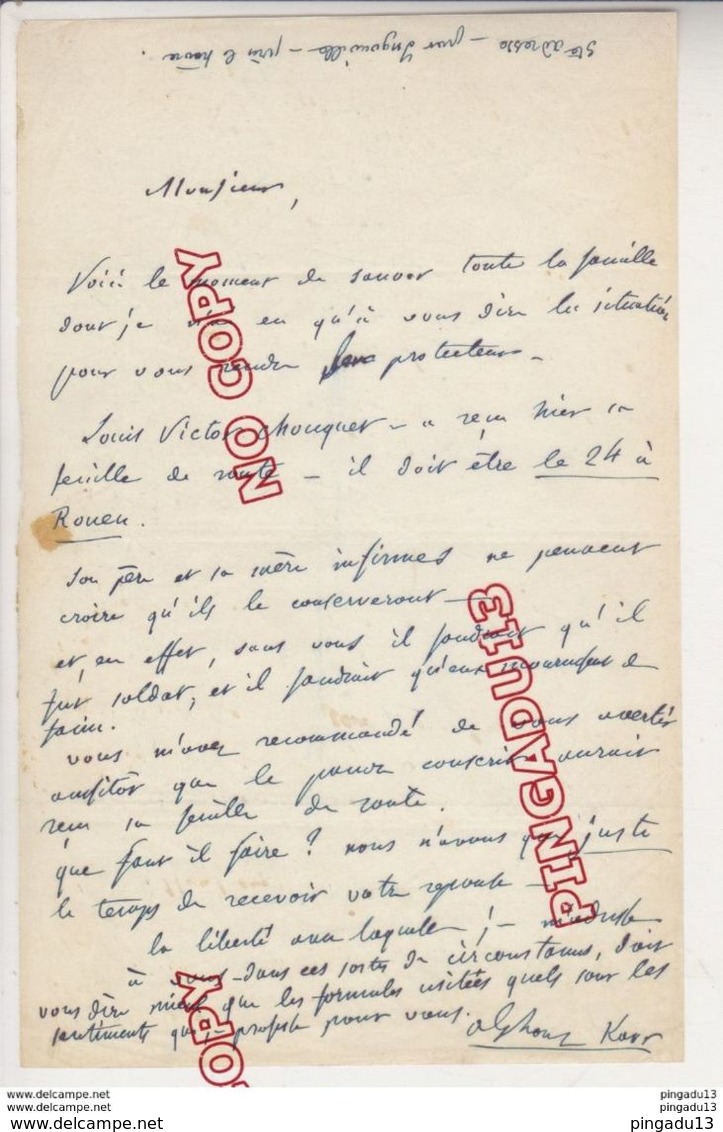 Ste adresse — par Ingouville — près le havre.
Monsieur,
Voici le moment de sauver toute la famille
dont je n'ai eu qu'à vous dire la situation
pour vous rendre leur protecteur —
Louis Victor chouquet — a reçu hier sa
feuille de route — il doit être le 24 à
Rouen.
Son père et sa mère infirmes ne peuvent
croire qu'ils le conserveront —
et, en effet, sans vous il faudrait qu'il
fut soldat, et il faudrait qu'eux mourussent de
faim.
vous m'avez recommandé de vous avertir
aussitôt que le pauvre conscrit aurait
reçu sa feuille de route.
que faut il faire ? nous n'avons que juste
le temps de recevoir votre réponse —
la liberté avec laquelle je m'adresse
à vous dans ces sortes de circonstances, doit
vous dire mieux que les formules usitées quels sont les
sentiments que je professe pour vous.
alphonse Karr
NO COPY
PINGADU13
COPY
www.delcampe.net
www.delcampe.net
www.delcampe.net
pingadu13
pingadu13
pingadu13